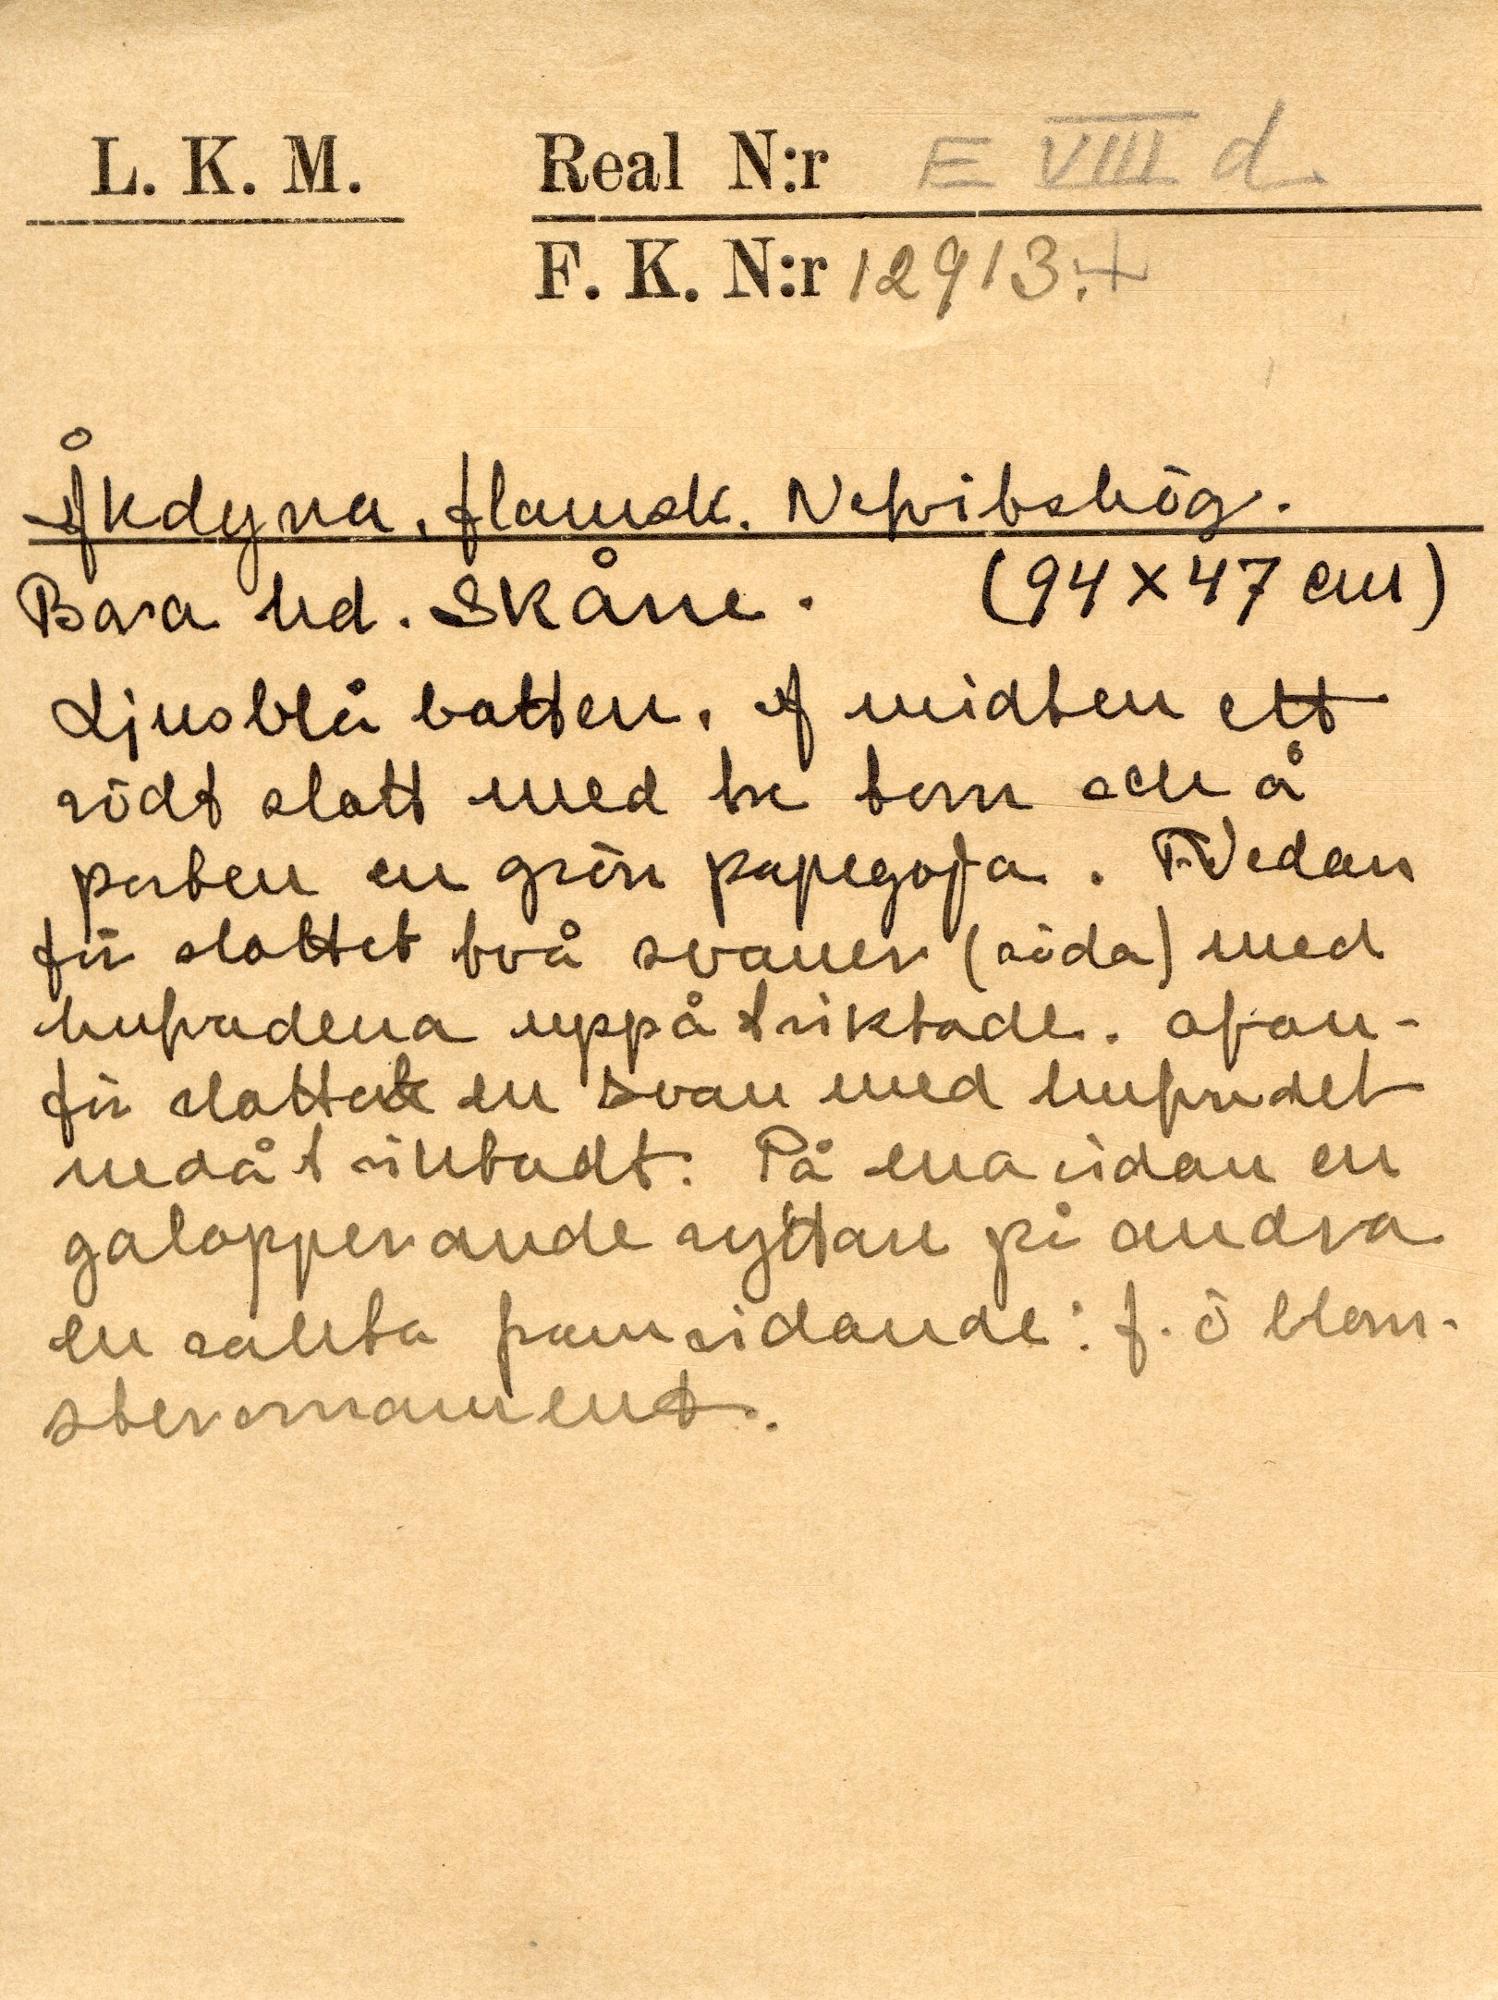 L. K. M.
Real N:r E VIII d.
F. K. N:r 12913:+
Åkdyna, flamsk. Nefvitshög.
Bara hd. Skåne. (94 x 47 cm)
Ljusblå botten. I midten ett
rödt slott med tre torn och å
porten en grön papegoja. Nedan
för slottet två svaner (röda) med
hufvudena uppåtriktade. Ofvan-
för slottet en svan med hufvudet
nedåt riktadt. På ena sidan en
galopperande ryttare på andra
en sakta framridande: f. ö blom-
sterornament.